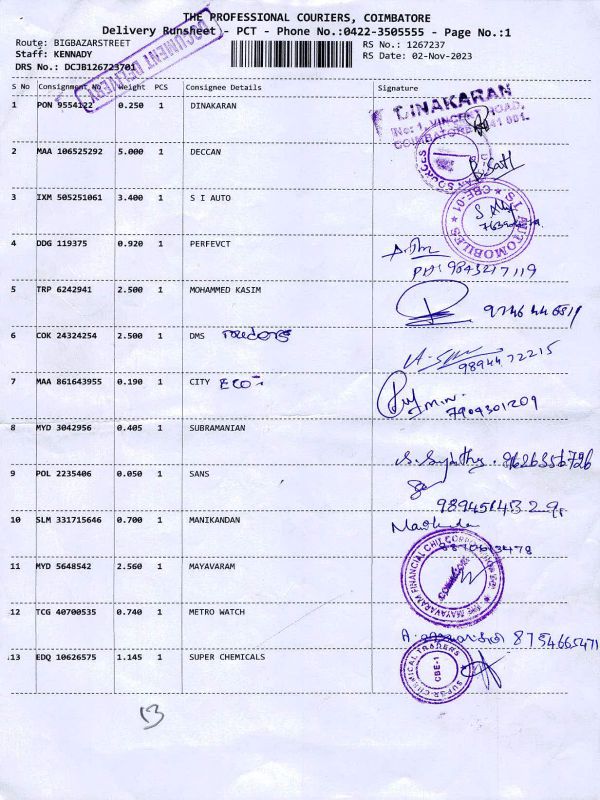 THE PROFESSIONAL COURIERS, COIMBATORE
Delivery Runsheet - PCT - Phone No.:0422-3505555 - Page No.:1
Route: BIGBAZARSTREET
RS No.: 1267237
Staff: KENNADY
RS Date: 02-Nov-2023
DRS No.: DCJB126723701
DOCUMENT DELIVERY
S No Consignment No Weight PCS Consignee Details Signature
1 PON 9554122 0.250 1 DINAKARAN
DINAKARAN
No: 1, VINCENT ROAD,
COIMBATORE-641 001.
2 MAA 106525292 5.000 1 DECCAN
3 IXM 505251061 3.400 1 S I AUTO
AUTOMOBILES ★ CBE-01 ★
4 DDG 119375 0.920 1 PERFEVCT
5 TRP 6242941 2.500 1 MOHAMMED KASIM
6 COK 24324254 2.500 1 DMS
9894472215
7 MAA 861643955 0.190 1 CITY
7904301209
8 MYD 3042956 0.405 1 SUBRAMANIAN
9 POL 2235406 0.050 1 SANS
10 SLM 331715646 0.700 1 MANIKANDAN
11 MYD 5648542 2.560 1 MAYAVARAM
THE MAYAVARAM FINANCIAL CHIT CORPORATION
12 TCG 40700535 0.740 1 METRO WATCH
8754665471
13 EDQ 10626575 1.145 1 SUPER CHEMICALS
SUPER CHEMICAL TRADERS
CBE-1
13